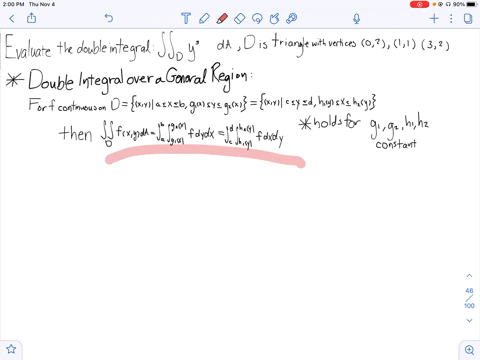 2:00 PM Thu Nov 4
90%
Evaluate the double integral: ∬_D y² dA, D is triangle with vertices (0,2), (1,1) (3,2)
* Double Integral over a General Region:
For f continuous on D = {(x,y) | a≤x≤b, g₁(x)≤y≤g₂(x)} = {(x,y) | c≤y≤d, h₁(y)≤x≤h₂(y)}
then ∬_D f(x,y)dA = ∫_a^b ∫_{g₁(x)}^{g₂(x)} f dydx = ∫_c^d ∫_{h₁(y)}^{h₂(y)} f dxdy * holds for g₁, g₂, h₁, h₂
constant
46
/
100